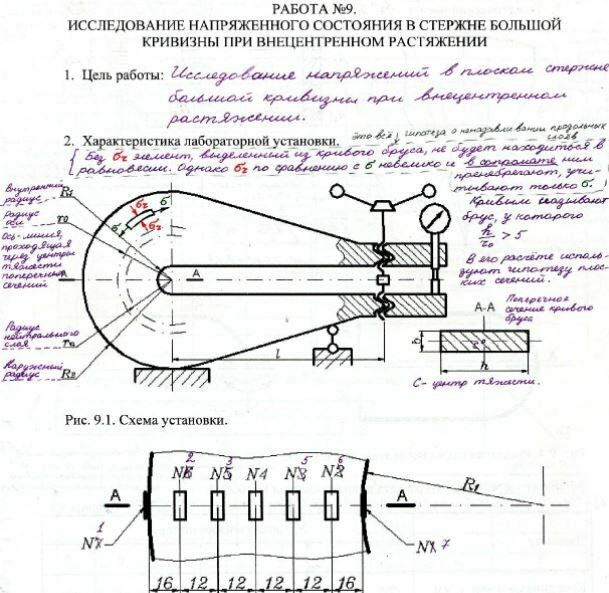 РАБОТА №9.
ИССЛЕДОВАНИЕ НАПРЯЖЕННОГО СОСТОЯНИЯ В СТЕРЖНЕ БОЛЬШОЙ
КРИВИЗНЫ ПРИ ВНЕЦЕНТРЕННОМ РАСТЯЖЕНИИ
1. Цель работы: Исследование напряжений в плоском стержне
большой кривизны при внецентренном
растяжении.
2. Характеристика лабораторной установки.
это всё, гипотеза о ненадавливании продольных
слоёв
Без σr элемент, выделенный из кривого бруса, не будет находиться в
равновесии. Однако σr по сравнению с σ невелико и в сопромате ним
пренебрегают, учи-
тывают только σ.
Внутренний
радиус
R1
Радиус
оси
r0
Ось-линия,
проходящая
через центры
тяжести
поперечных
сечений
Радиус
нейтрального
слоя
Наружный
радиус
R2
σ
σr
σr
σ
A
A
l
Кривым называют
брус, у которого
h/r0 > 5
В его расчёте исполь-
зуют гипотезу плос-
ких сечений.
A-A
Поперечное
сечение кривого
бруса
c
h
С- центр тяжести.
Рис. 9.1. Схема установки.
2 3 5 6
N6 N5 N4 N3 N2
A
A
R1
1
N7
7
12 12 12 12
16 16